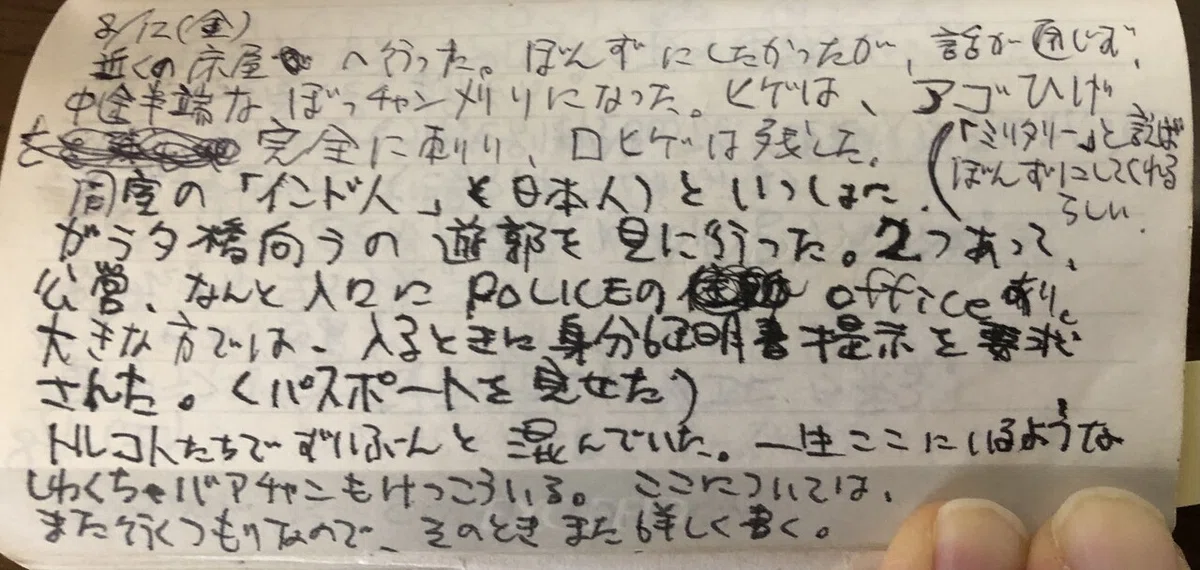 8/12(金)
近くの床屋へ行った。ぼんずにしたかったが、話が通じず、
中途半端なぼっチャン刈りになった。ヒゲは、アゴひげ
を 完全に剃り、口ヒゲは残した。
(「ミリタリー」と言えば
ぼんずにしてくれる
らしい.
同室の「インド人」と日本人)といっしょに.
ガラタ橋向うの遊郭を見に行った。2つあって、
公営、なんと入口にPOLICEの office あり。
大きな方では、入るときに身分証明書提示を要求
された。(パスポートを見せた)
トルコ人たちでずいぶーんと混んでいた。一生ここにいるような
しわくちゃバアチャンもけっこういる。ここについては、
また行くつもりなので、そのときまた詳しく書く。